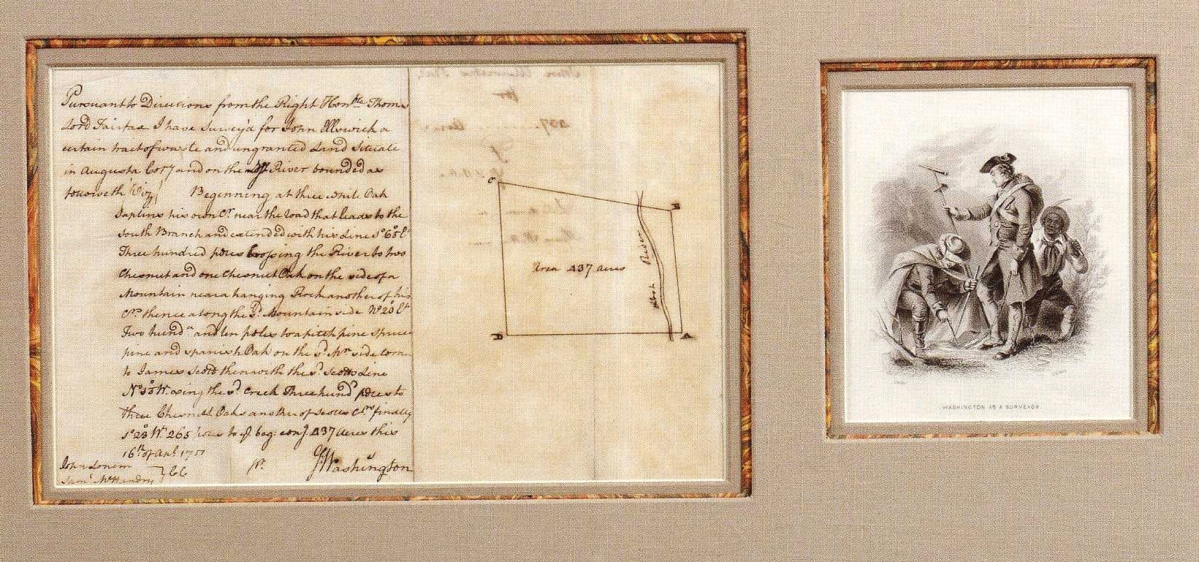 Pursuant to Directions from the Right Hon.ble Thomas
Lord Fairfax I have Survey'd for John Ullwick a
certain tract of waste and ungranted Land Situate
in Augusta Co.ty and on the River bounded as
followeth Viz.
Beginning at three white Oak
Saplins his own C.r near the road that leads to the
South Branch and extended with his Line S.o 65 E.t
Three hundred poles Crossing the River to two
Chesnut and one Chesnut Oak on the side of a
Mountain near a hanging Rock another of his
C.rs thence along the S.d Mountain side N.o 20 E.t
Two hund.d and ten poles to a pitch pine spruce
pine and spanish Oak on the S.d M.n side corner
to James Scott thence with the S.d Scotts Line
N.o W. Xing the S.d Creek Three hund.d poles to
three Chesnut Oaks another of Scotts C.rs finally
S.o 20 W. 265 poles to y.e beg: con.g 437 Acres this
16.th of Ap.l 1751
John Lonem
Sam.l McHendry } CC
p.r GWashington
C
B
Area 437 acres
River
D
A
WASHINGTON AS A SURVEYOR